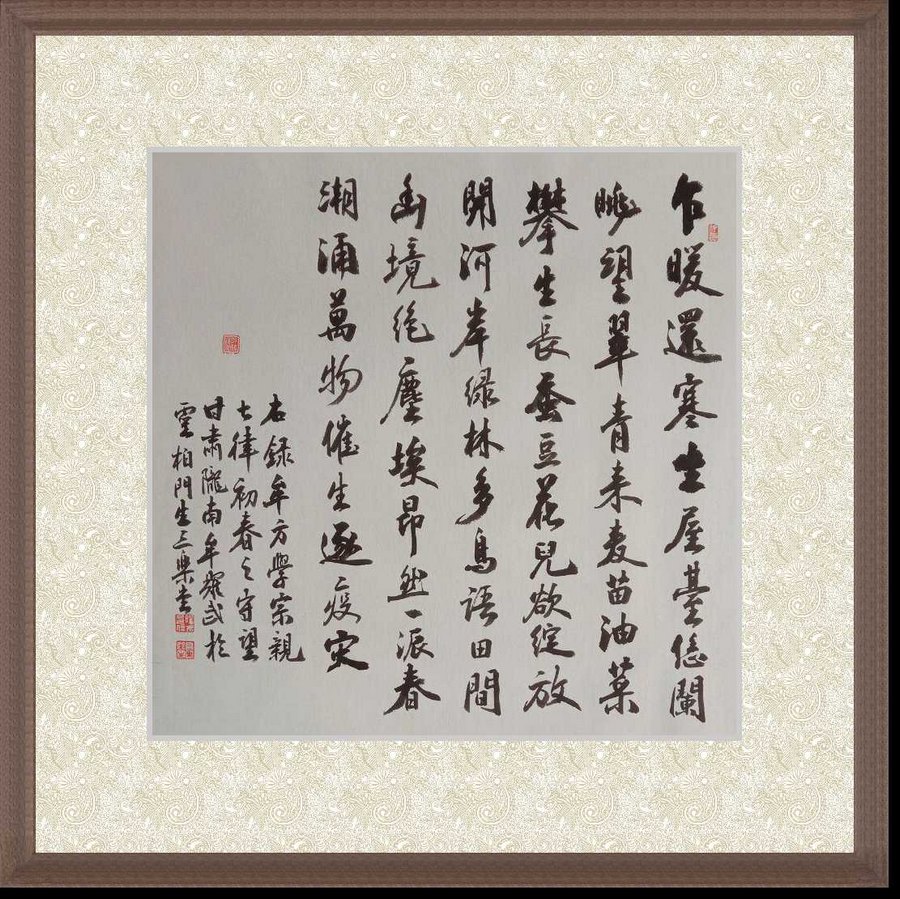 乍暖還寒土屋臺倚闌
眺望翠青来麦苗油菜
攀生長蚕豆花兒欲綻放
開河岸绿林多鳥語田間
幽境绝塵埃昂然一派春
潮涌萬物催生逐疫灾
右録牟方學宗親
七律初春之守望
甘肅隴南牟耀武於
雲柏門生三樂